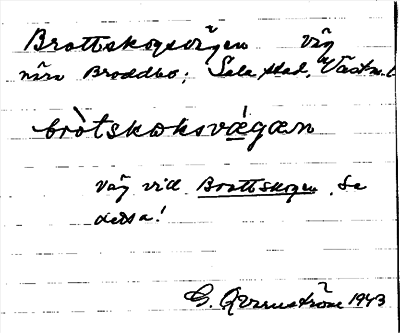 Brottskogsvägen väg
nära Broddbo; Sala stad, Västm.
bròtskoksvǽgæn
väg vid Brottskogen. Se
detta!
G. Qvarnström 1943